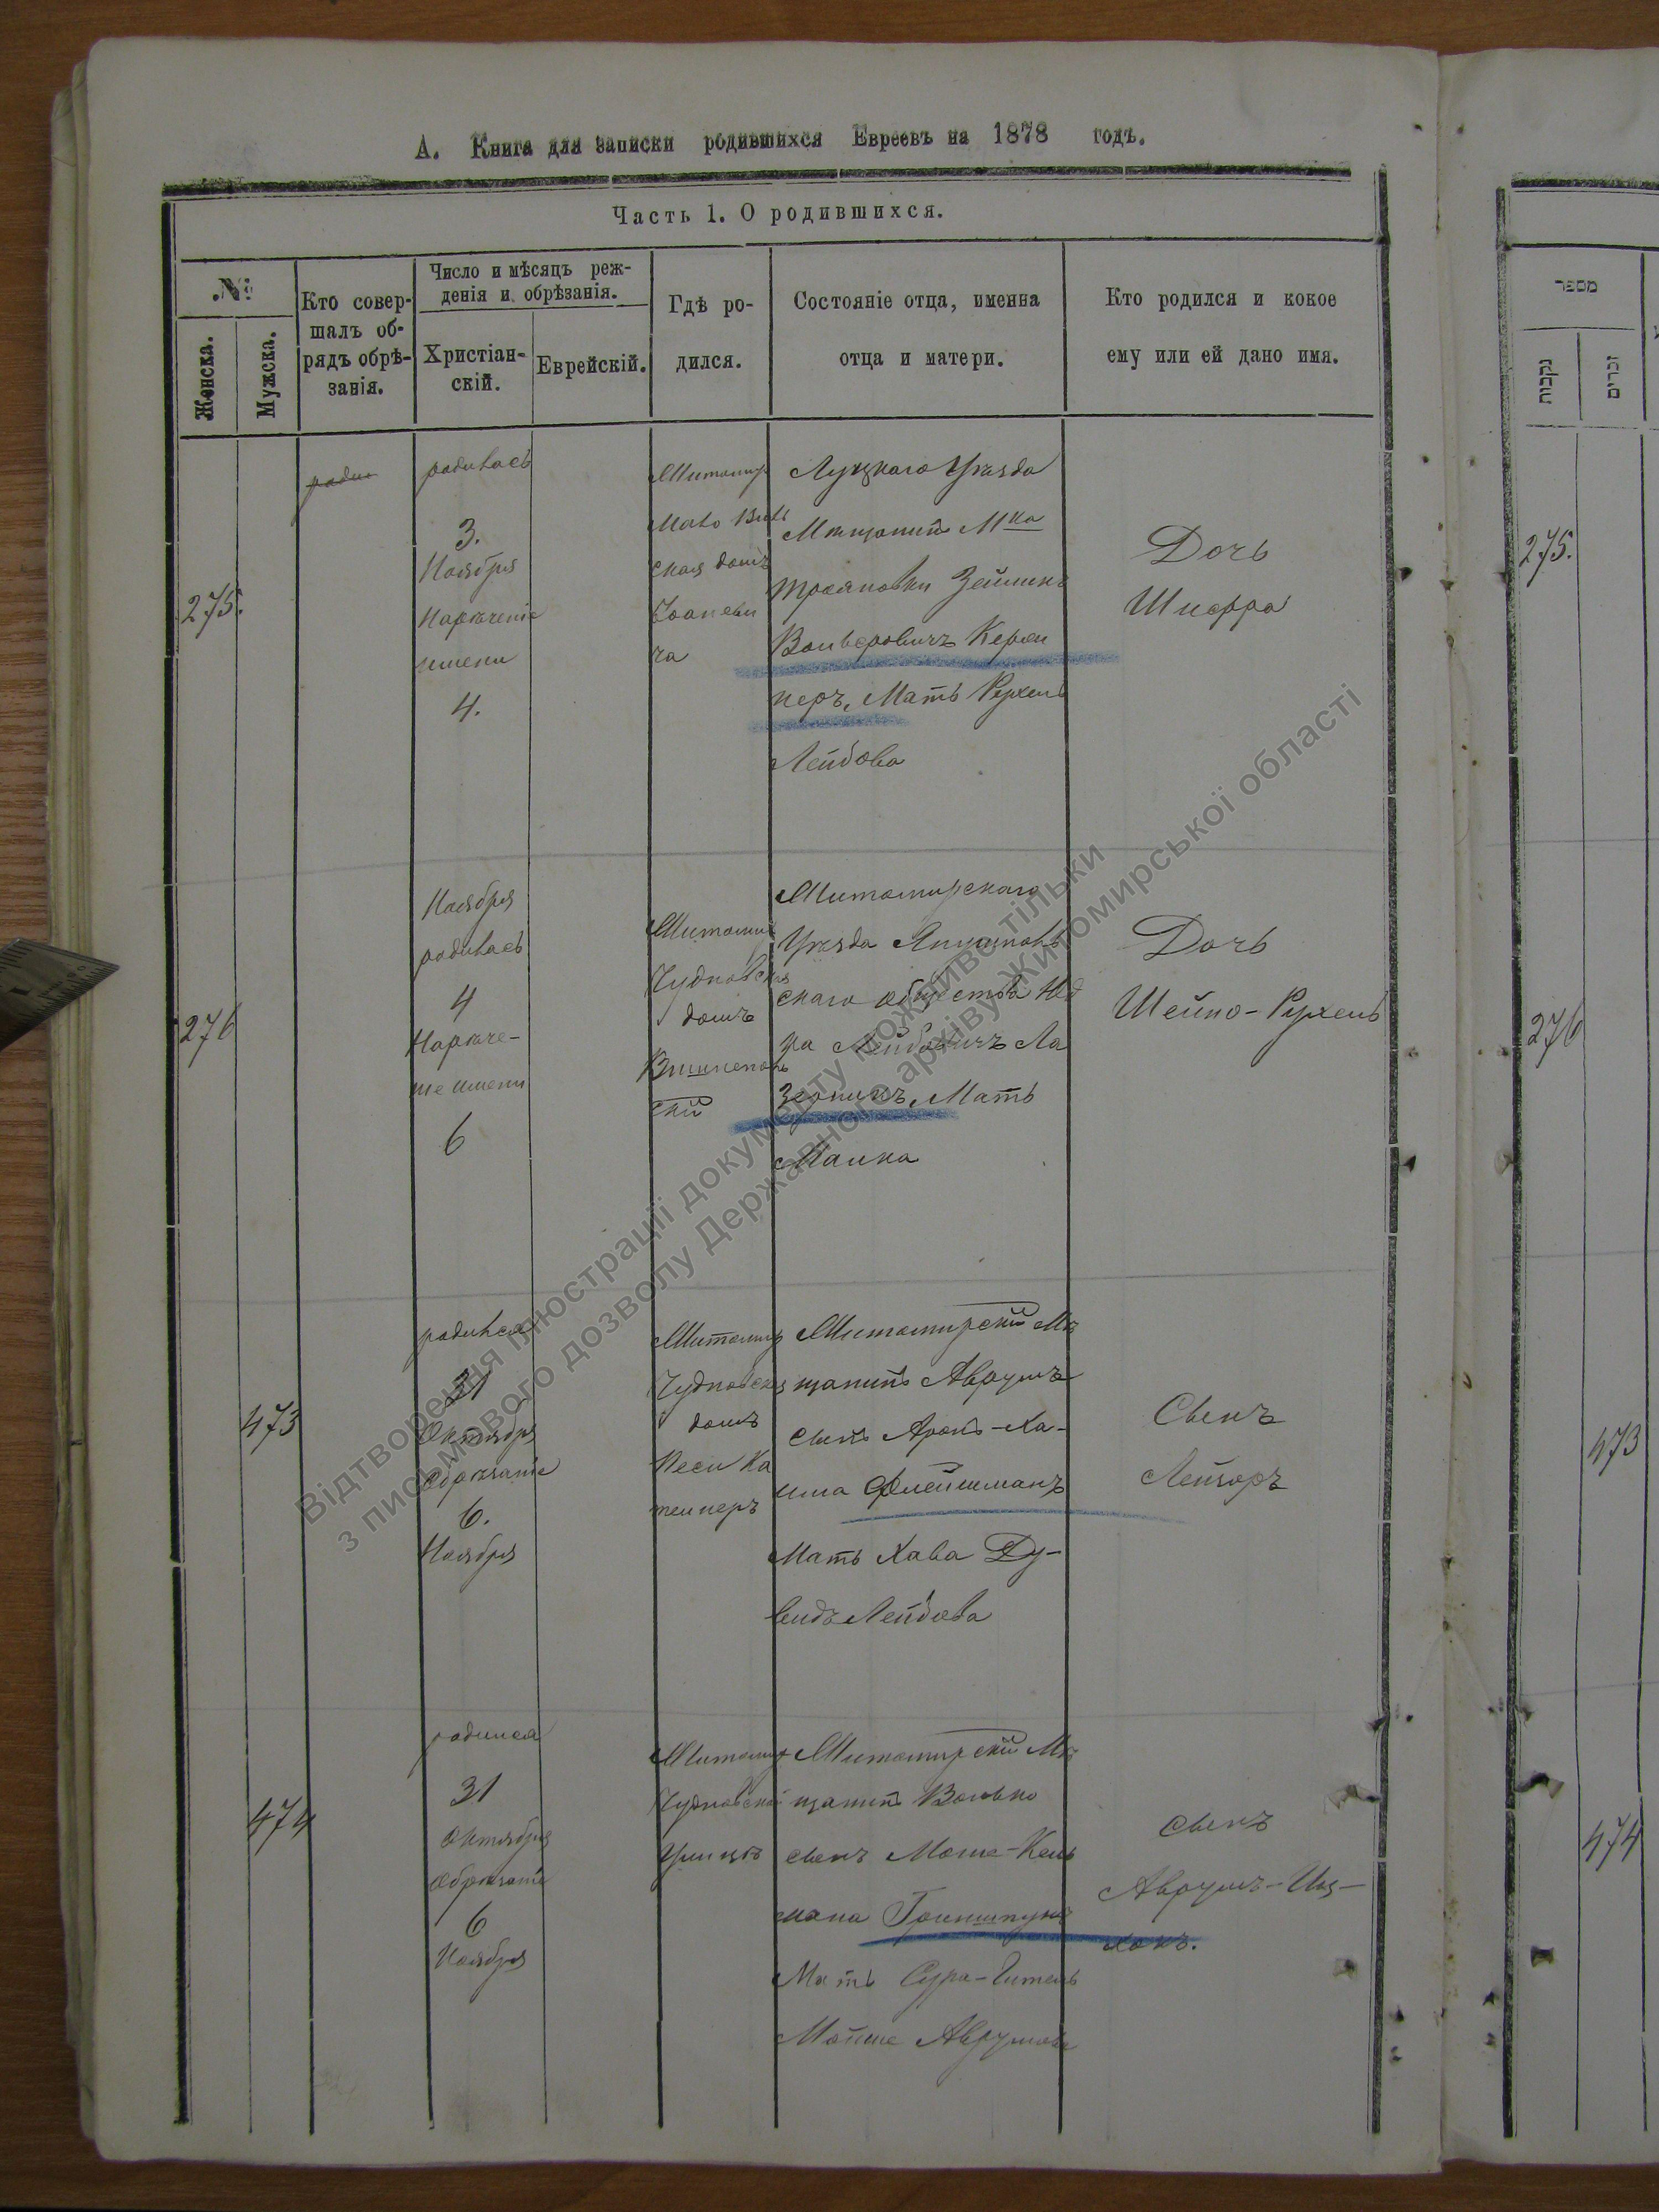 А. Книга для записки родившихся Евреевъ на 1878 годъ.
Часть 1. О родившихся.
№
Женска.
Мужска.
Кто совер-
шалъ об-
рядъ обрѣ-
занія.
Число и мѣсяцъ реж-
денія и обрѣзанія.
Христіан-
скій.
Еврейскій.
Гдѣ ро-
дился.
Состояніе отца, именна
отца и матери.
Кто родился и кокое
ему или ей дано имя.
מספר
נקבות
זכרים
275.
родилась
3.
Ноября
Нареченіе
имени
4.
Житомир
Мало
ская домъ
ча
Луцкаго Уѣзда
Мѣщанинъ М-ка
Трояновки Зейликъ
Вольфовичъ
неръ, Мать Рухель
Лейбова
Дочь
Шифра
275.
276
Ноября
родилась
4
Нарече-
ніе имени
6
Житомир
Чудновская
домъ
скій
Житомирскаго
Уѣзда
скаго общества
ка Лейбовичъ Ла
зебникъ, Мать
Малка
Дочь
Шейно-Рухель
276
473
родился
31
Октября
Обрезаніе
6.
Ноября
Житомир
Чудновская
домъ
Песи Ка
Житомирскій Мѣ
щанинъ Аврумъ
сынъ Аронъ-Ха-
има Флейшманъ
Мать Хава Ду-
видъ Лейбова
Сынъ
Лейзоръ
473
474
родился
31
Октября
Обрезаніе
6
Ноября
Житомир
Чудновской
Улицѣ
Житомирскій Мѣ
щанинъ Волько
сынъ Моше-Кель
мана
Мать Сура-Гитель
Мойше Аврумова
Сынъ
Аврумъ-Иц-
хокъ.
474
Відтворення ілюстрації документу можливе тільки
з письмового дозволу Державного архіву Житомирської області